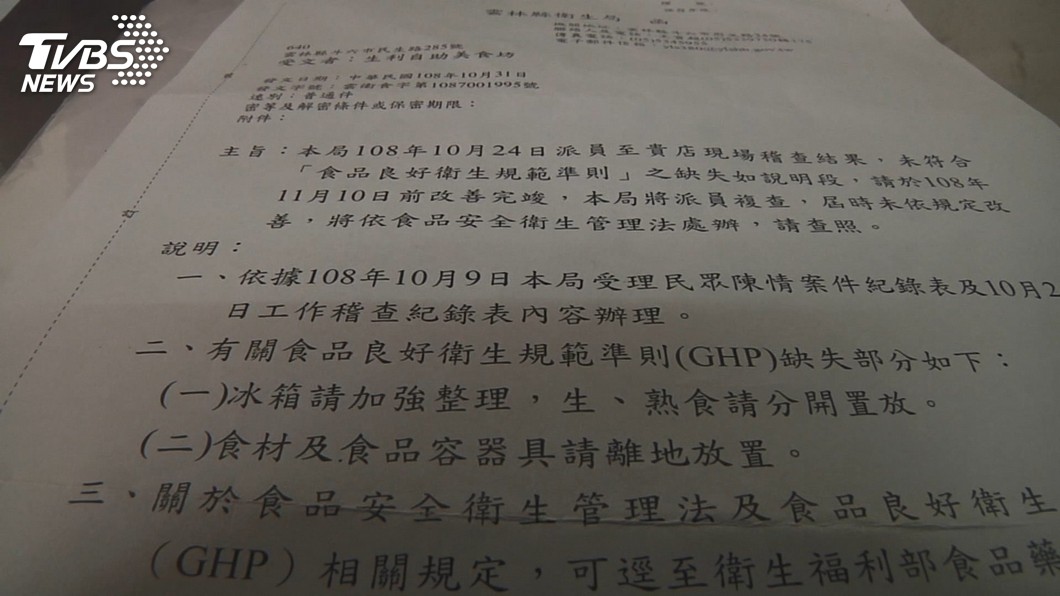 TVBS
NEWS
雲林縣衛生局 函
640
雲林縣斗六市民生路285號
受文者：生利自助美食坊
發文日期：中華民國108年10月31日
發文字號：雲衛食字第1087001995號
速別：普通件
密等及解密條件或保密期限：
附件：
主旨：本局108年10月24日派員至貴店現場稽查結果，未符合
「食品良好衛生規範準則」之缺失如說明段，請於108年
11月10日前改善完竣，本局將派員複查，屆時未依規定改
善，將依食品安全衛生管理法處辦，請查照。
訂
說明：
一、依據108年10月9日本局受理民眾陳情案件紀錄表及10月2
日工作稽查紀錄表內容辦理。
二、有關食品良好衛生規範準則(GHP)缺失部分如下：
(一)冰箱請加強整理，生、熟食請分開置放。
(二)食材及食品容器具請離地放置。
三、關於食品安全衛生管理法及食品良好衛生
（GHP）相關規定，可逕至衛生福利部食品藥